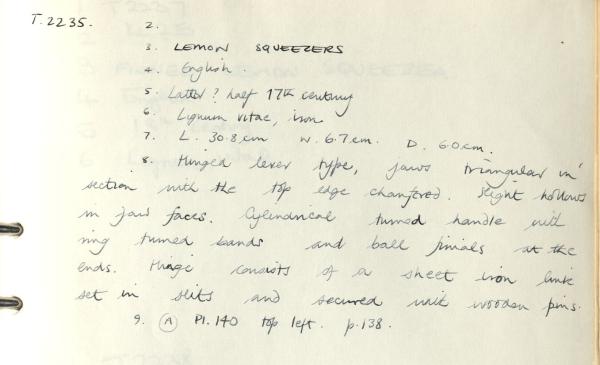 T.2235. 2.
3. LEMON SQUEEZERS
4. English
5. Latter? half 17th century
6. Lignum vitae, iron
7. L. 30.8cm W. 6.7cm. D. 6.0cm.
8. Hinged lever type, jaws triangular in
section with the top edge chamfered. Slight hollows
in jaw faces. Cylindrical turned handle with
ring turned bands and ball finials at the
ends. Hinge consists of a sheet iron link
set in slits and secured with wooden pins.
9. A Pl. 140 top left. p.138.